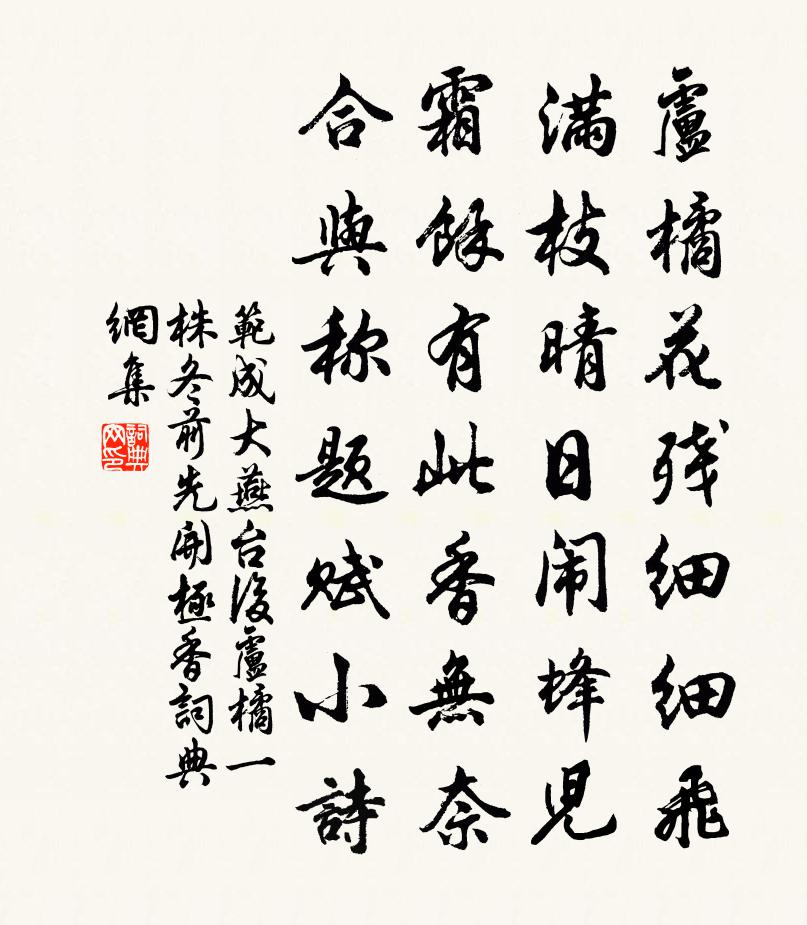 盧橘花残細細飛
満枝晴日闹蜂児
霜餘有此香無奈
合與称题赋小詩
範成大燕台後盧橘一
株冬前先開極香詞典
網集
詞典
网印